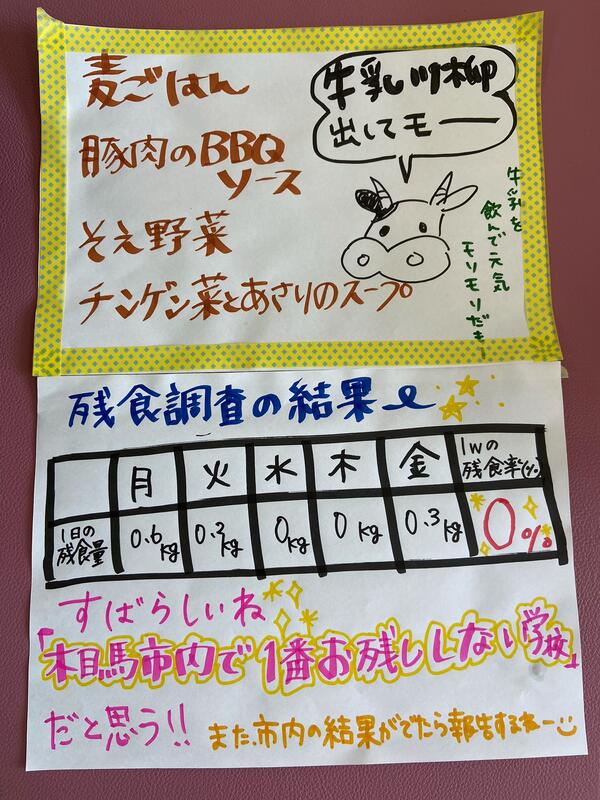 麦ごはん
豚肉のBBQ
ソース
そえ野菜
チンゲン菜とあさりのスープ
牛乳川柳
出してモー
牛乳を
飲んで元気
モリモリだもー
残食調査の結果
月 火 水 木 金 1wの残食率(%)
1日の残食量 0.6kg 0.2kg 0kg 0kg 0.3kg 0%
すばらしいね
「相馬市内で1番お残ししない学校」
だと思う!!
また市内の結果がでたら報告するねー